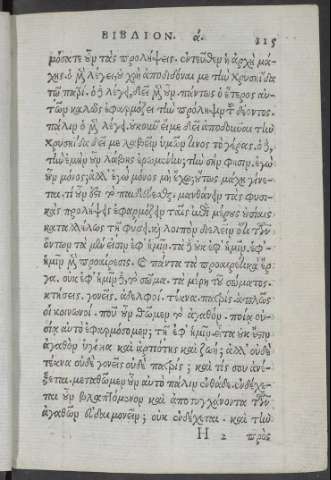 ΒΙΒΛΙΟΝ. ά. 115
μόσατε οὖν τὰς προλήψεις. ἐντεῦθεν ἡ ἀρχὴ μά-
χης. ὁ μὲν λέγει, οὐ χρὴ ἀποδιδόναι με τὴν χρυσηίδα
τῷ πατρί. ὁ δὲ λέγει, δεῖ μὲν οὖν. πάντως ὁ ἕτερος αὐ-
τῶν κακῶς ἐφαρμόζει τὴν πρόληψιν τοῦ δέοντος.
πάλιν ὁ μὲν λέγει. οὐκοῦν εἴ με δεῖ ἀποδοῦναι τὴν
χρυσηίδα δεῖ με λαβεῖν ὑμῶν τινος τὸ γέρας. ὁ δὲ,
τὴν ἐμὴν οὖν λάβῃς ἐρωμένην; τὴν σὴν φησιν. ἐγὼ
οὖν μόνος; ἀλλ' ἐγὼ μόνος μὴ ἔχω; οὕτως μάχη γίνε-
ται. τί οὖν ἐστι τὸ παιδεύεσθαι. μανθάνειν τὰς φυσι-
κὰς προλήψεις ἐφαρμόζειν ταῖς ἐπὶ μέρους οὐσίαις
καταλλήλως τῇ φύσει, καὶ λοιπὸν διελεῖν ὅτι τῶν
ὄντων τὰ μὲν εἰσιν ἐφ' ἡμῖν. τὰ δὲ οὐκ ἐφ' ἡμῖν. ἐφ'
ἡμῖν μὲν προαίρεσις. καὶ πάντα τὰ προαιρετικὰ ἔρ-
γα. οὐκ ἐφ' ἡμῖν δὲ τὸ σῶμα. τὰ μέρη τοῦ σώματος.
κτήσεις. γονεῖς. ἀδελφοί. τέκνα. πατρίς. ἁπλῶς
οἱ κοινωνοί. ποῦ οὖν θῶμεν τὸ ἀγαθόν. ποίᾳ οὐ-
σίᾳ αὐτὸ ἐφαρμόσομεν; τῇ ἐφ' ἡμῖν. εἶτα οὐκ ἔστιν
ἀγαθὸν ὑγεία καὶ ἀρτιότης καὶ ζωή; ἀλλ' οὐδὲ
τέκνα οὐδὲ γονεῖς οὐδὲ πατρίς; καὶ τίς σου ἀνέ-
ξεται. μεταθῶμεν οὖν αὐτὸ πάλιν ἐνθάδε. ἐνδέχε-
ται οὖν βλαπτόμενον καὶ ἀποτυγχάνοντα τῶν
ἀγαθῶν εὐδαιμονεῖν; οὐκ ἐνδέχεται. καὶ τὴν
H 2 πρὸς